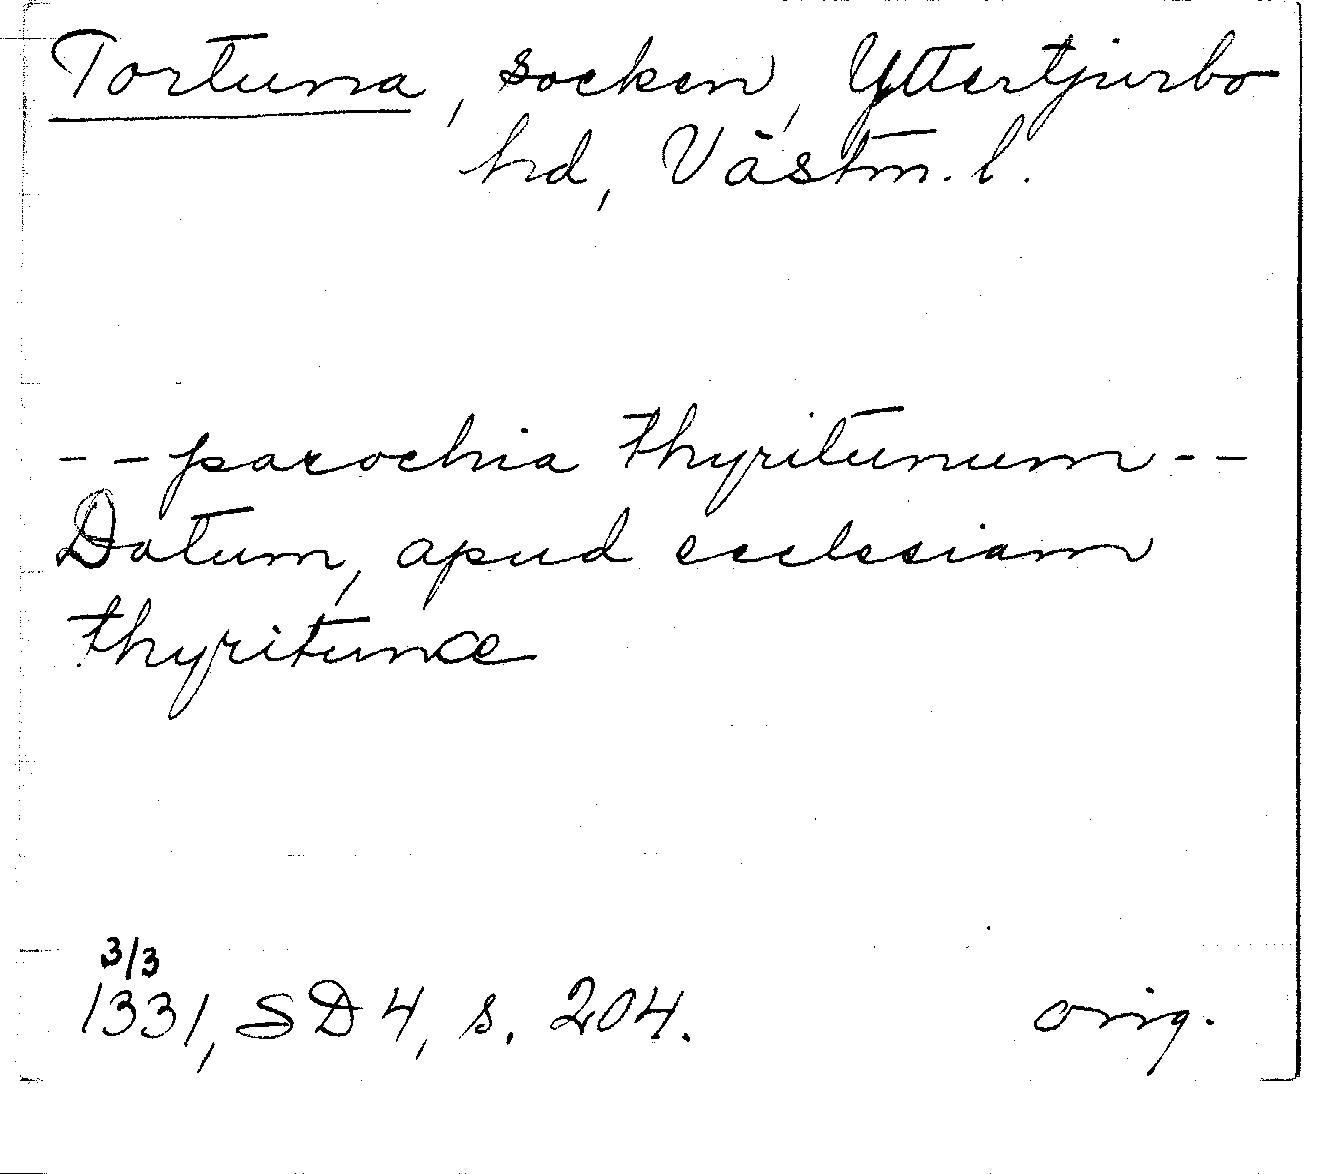 Tortuna, socken, Yttertjurbo
hd, Västm. l.
-- parochia thyritunum --
Datum, apud ecclesiam
thyritunæ
3/3
1331, SD 4, s. 204. orig.